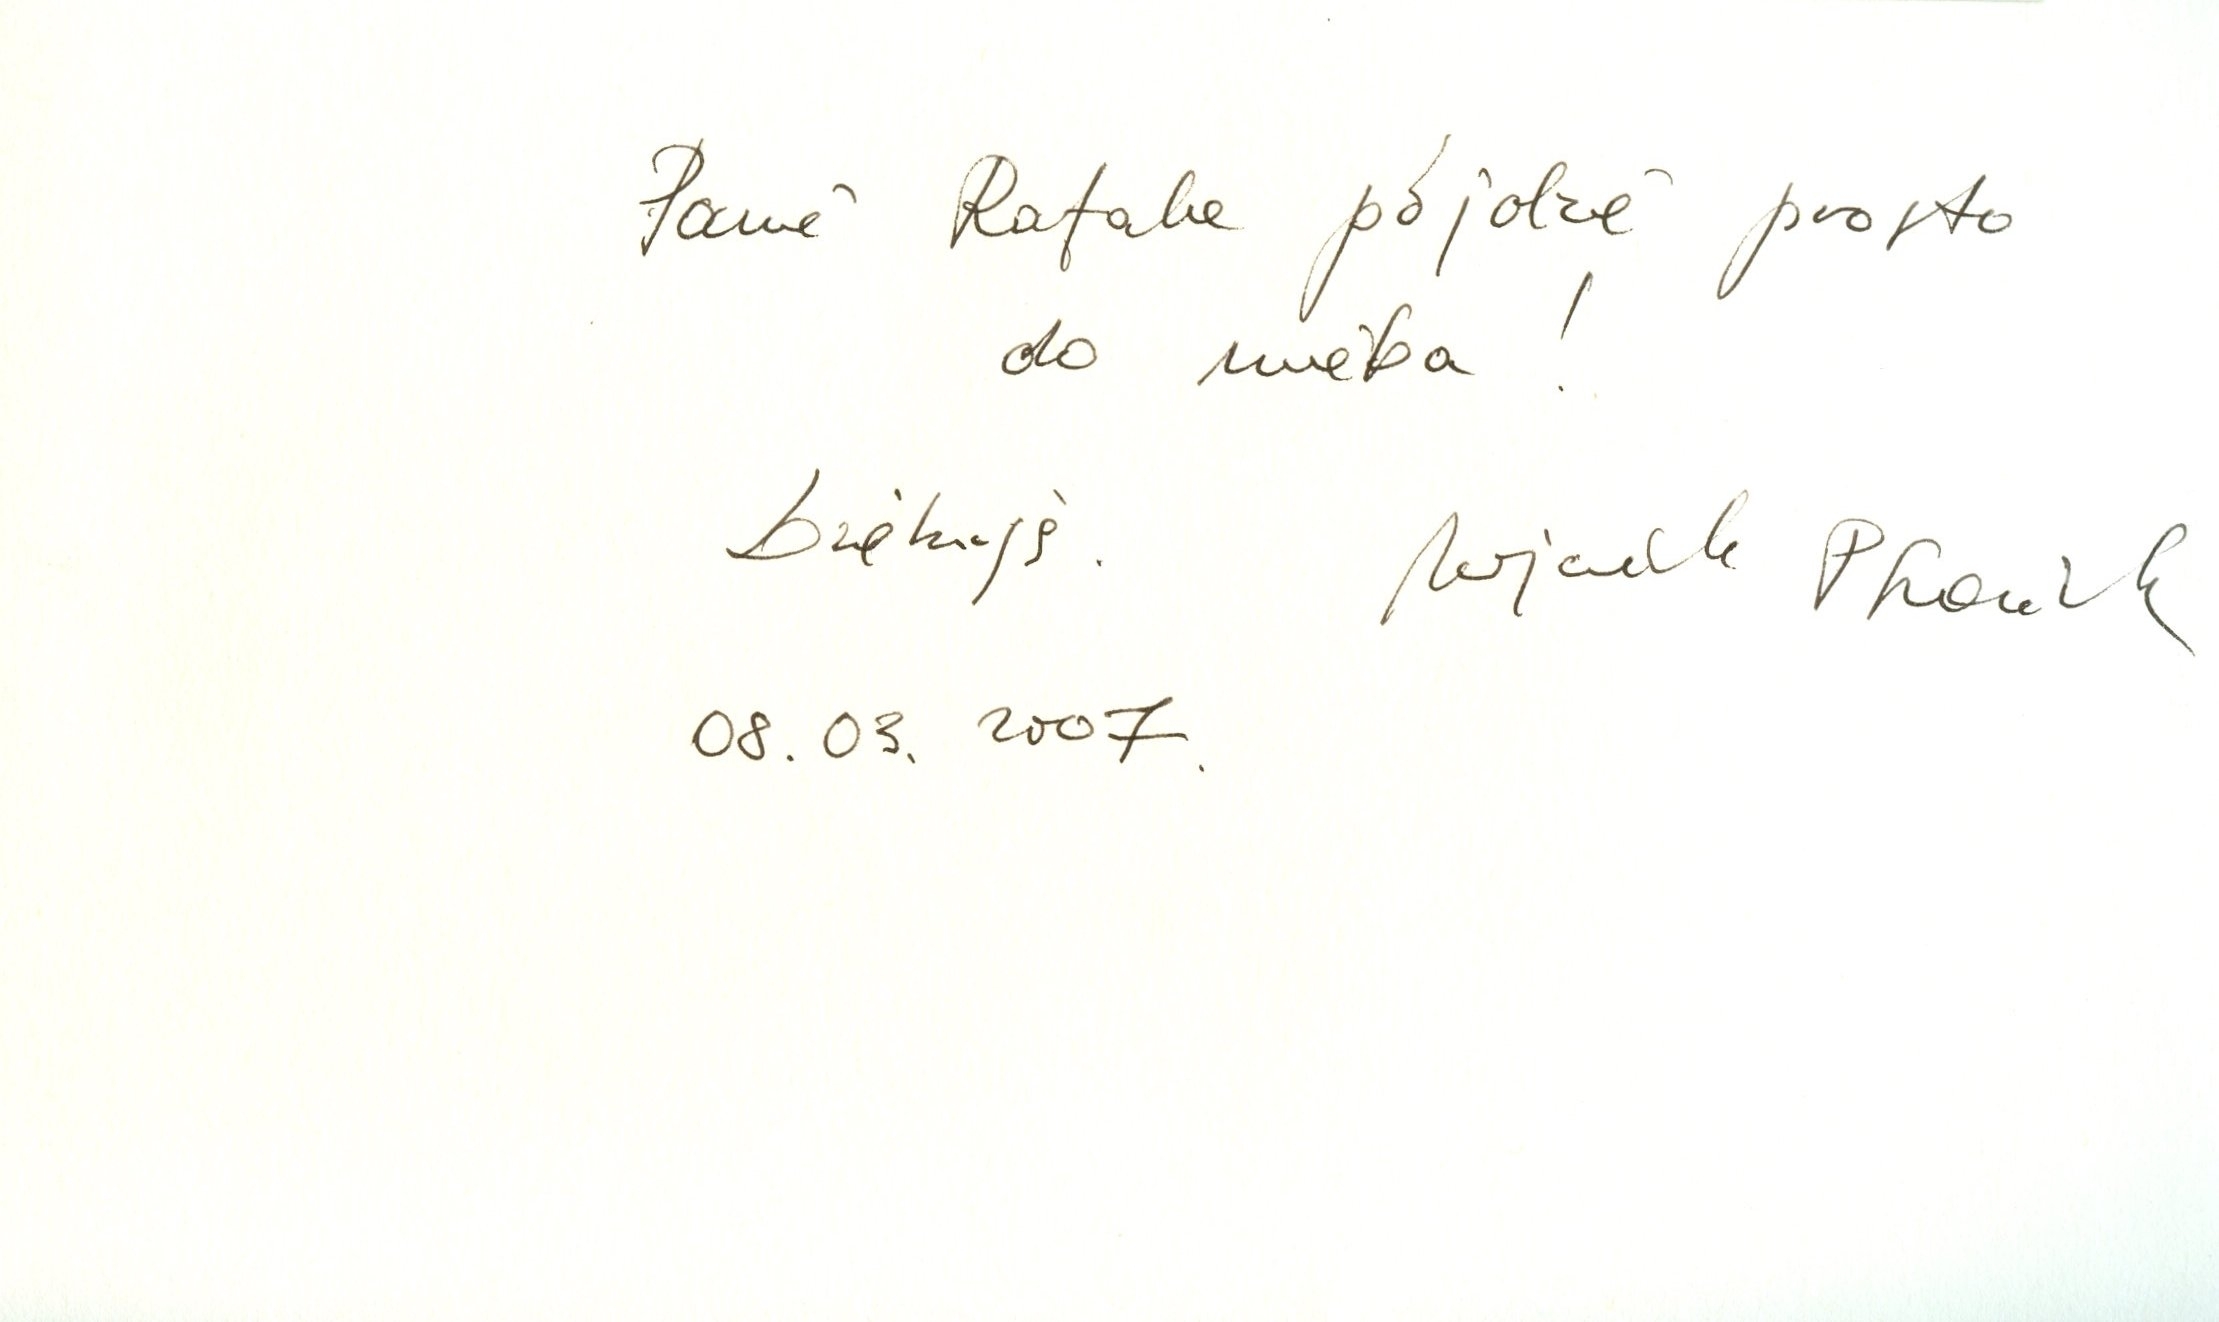 Panie Rafale pójdzie prosto
do nieba!
Dziękuję. Wojciech
08.03.2007.